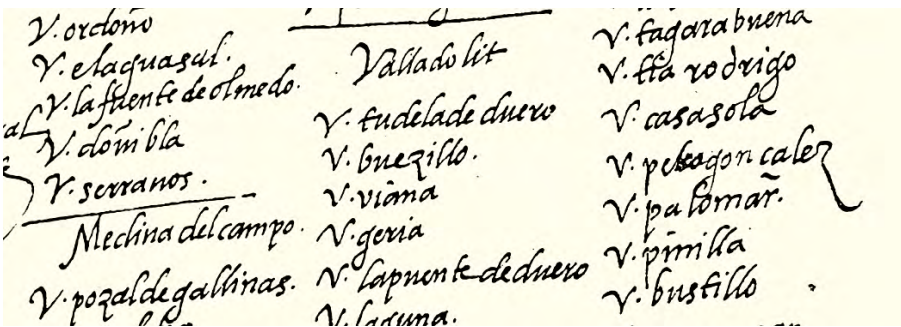 V. ordoño
V. elaguasal.
V. lafuente de olmedo.
V. doñibla
V. serranos.
Medina del campo.
V. pozal de gallinas.
Vallado lit
V. tudela de duero
V. buezillo.
V. viana
V. geria
V. lapuente de duero
V. laguna.
V. tagarabuena
V. tta rodrigo
V. casasola
V. gonçalez
V. palomar.
V. pinilla
V. bustillo